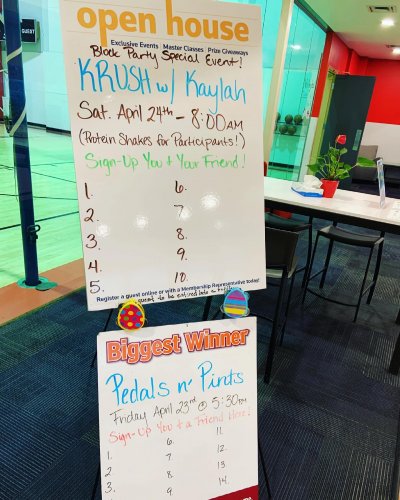 GUEST
open house
Exclusive Events Master Classes Prize Giveaways
Block Party Special Event!
KRUSH w/ Kaylah
Sat. April 24th - 8:00AM
(Protein Shakes for Participants!)
Sign-Up You + Your Friend!
1. 6.
2. 7
3. 8.
4. 9.
5. 10.
Register a guest online or with a Membership Representative today!
guest to be entered into a
Biggest Winner
Pedals n' Pints
Friday April 23rd @ 5:30pm
Sign-Up You + a Friend Here!
1. 6. 11.
2. 7 12.
3. 8 13.
9 14.